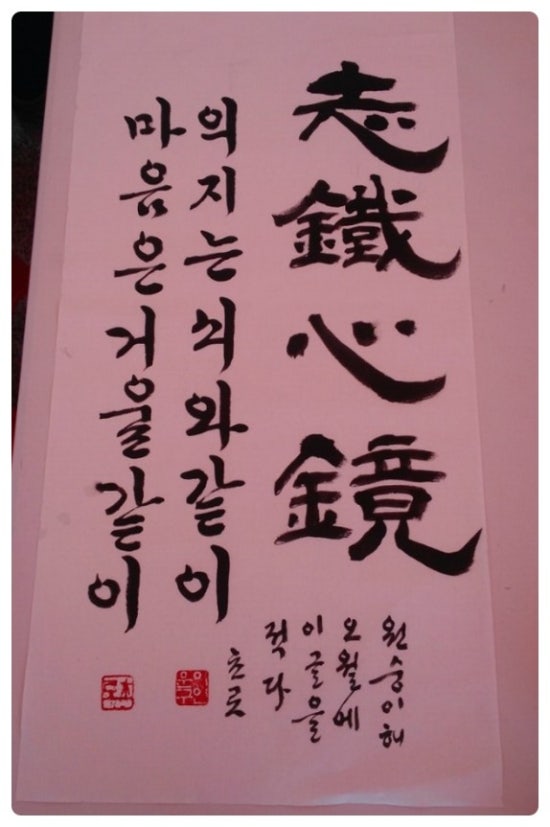 志鐵心鏡
의지는쇠와같이
마음은거울같이
원숭이해
오월에
이글을
적다
초로